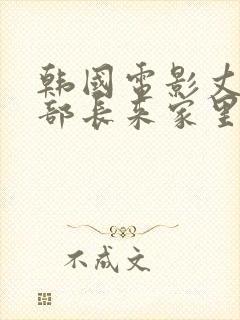 韩国电影丈
部长来家里
不成文